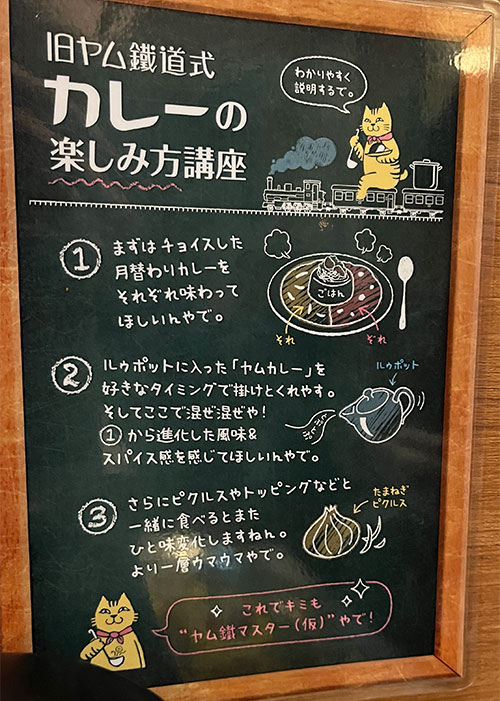 旧ヤム鐵道式
カレーの
楽しみ方講座
わかりやすく
説明するで。
1
まずはチョイスした
月替わりカレーを
それぞれ味わって
ほしいんやで。
ごはん
それ
ぞれ
2
ルゥポットに入った「ヤムカレー」を
好きなタイミングで掛けとくれやす。
そしてここで混ぜ混ぜや!
①から進化した風味&
スパイス感を感じてほしいんやで。
ルゥポット
3
さらにピクルスやトッピングなどと
一緒に食べるとまた
ひと味変化しますねん。
より一層ウマウマやで。
たまねぎ
ピクルス
これでキミも
“ヤム鐵マスター(仮)”やで!